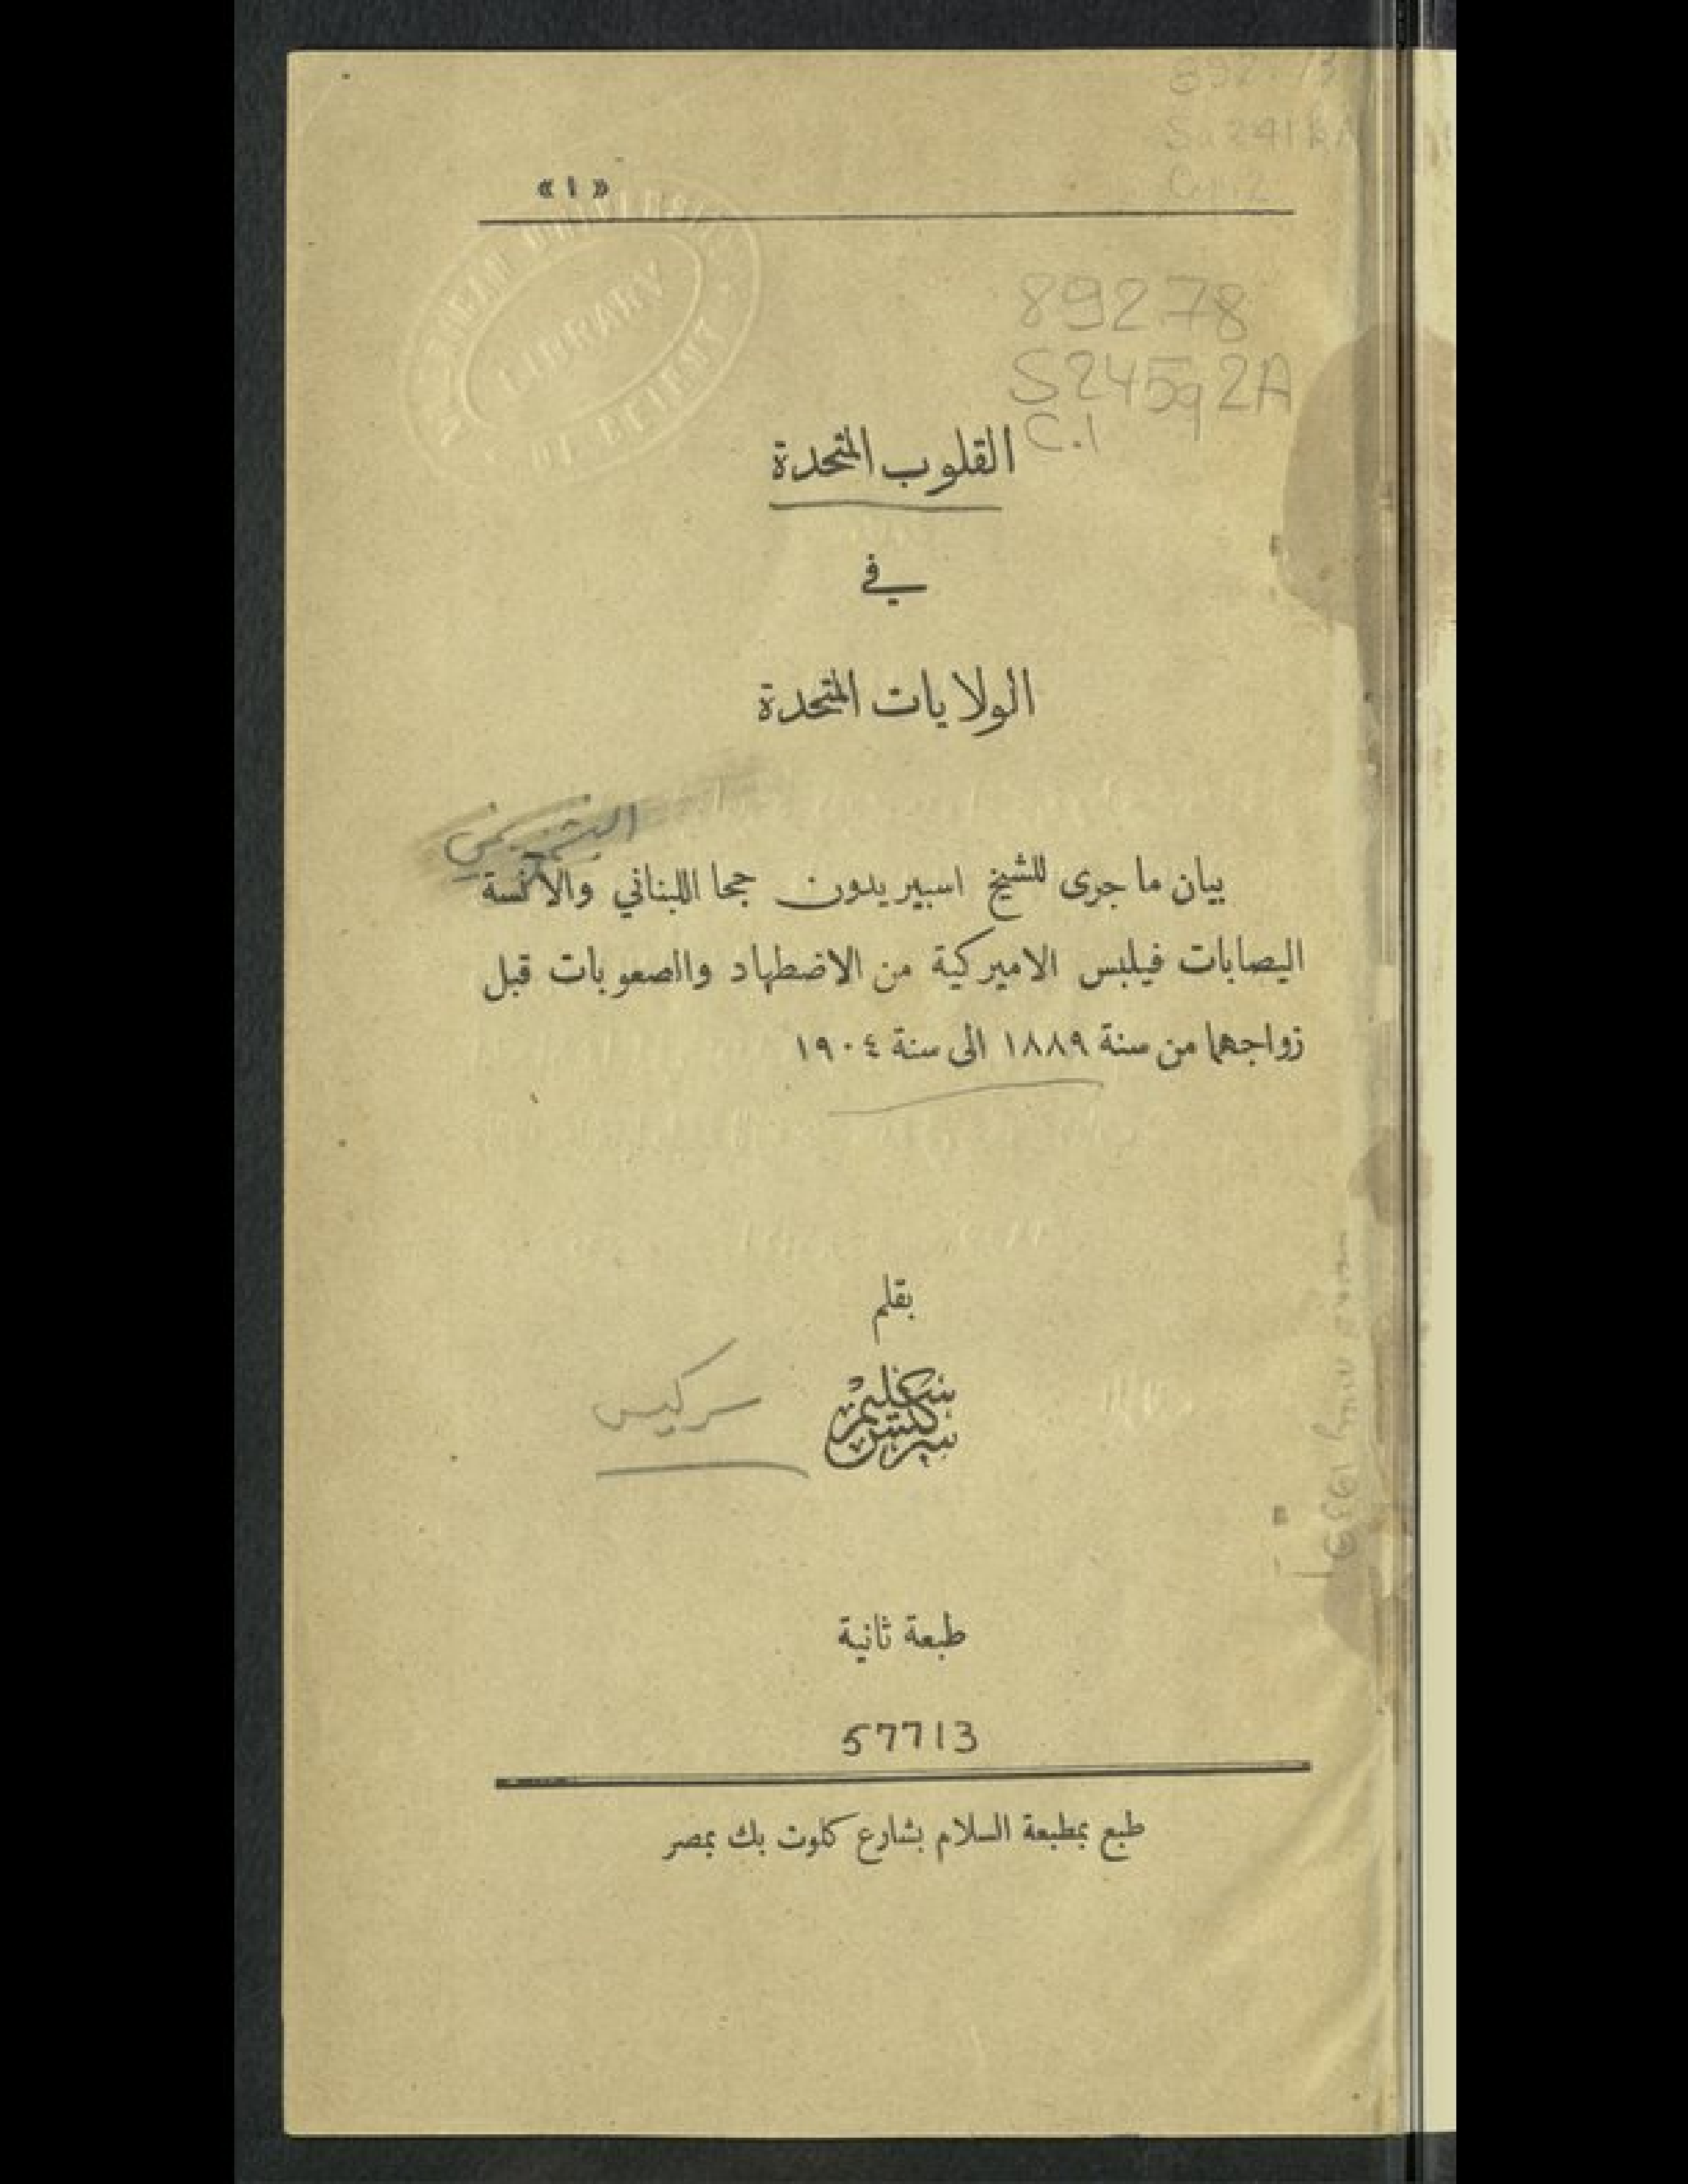 892.73
« ١ »
AMERICAN UNIVERSITY
LIBRARY
OF BEIRUT
892.78
S245q2A
C.1
القلوب المتحدة
في
الولايات المتحدة
بيان ما جرى للشيخ اسبيريدون جحا اللبناني والآنسة
اليصابات فيلبس الاميركية من الاضطهاد والصعوبات قبل
زواجهما من سنة ١٨٨٩ الى سنة ١٩٠٤
بقلم
سليم
سركيس
سركيس
طبعة ثانية
57713
طبع بمطبعة السلام بشارع كلوت بك بمصر